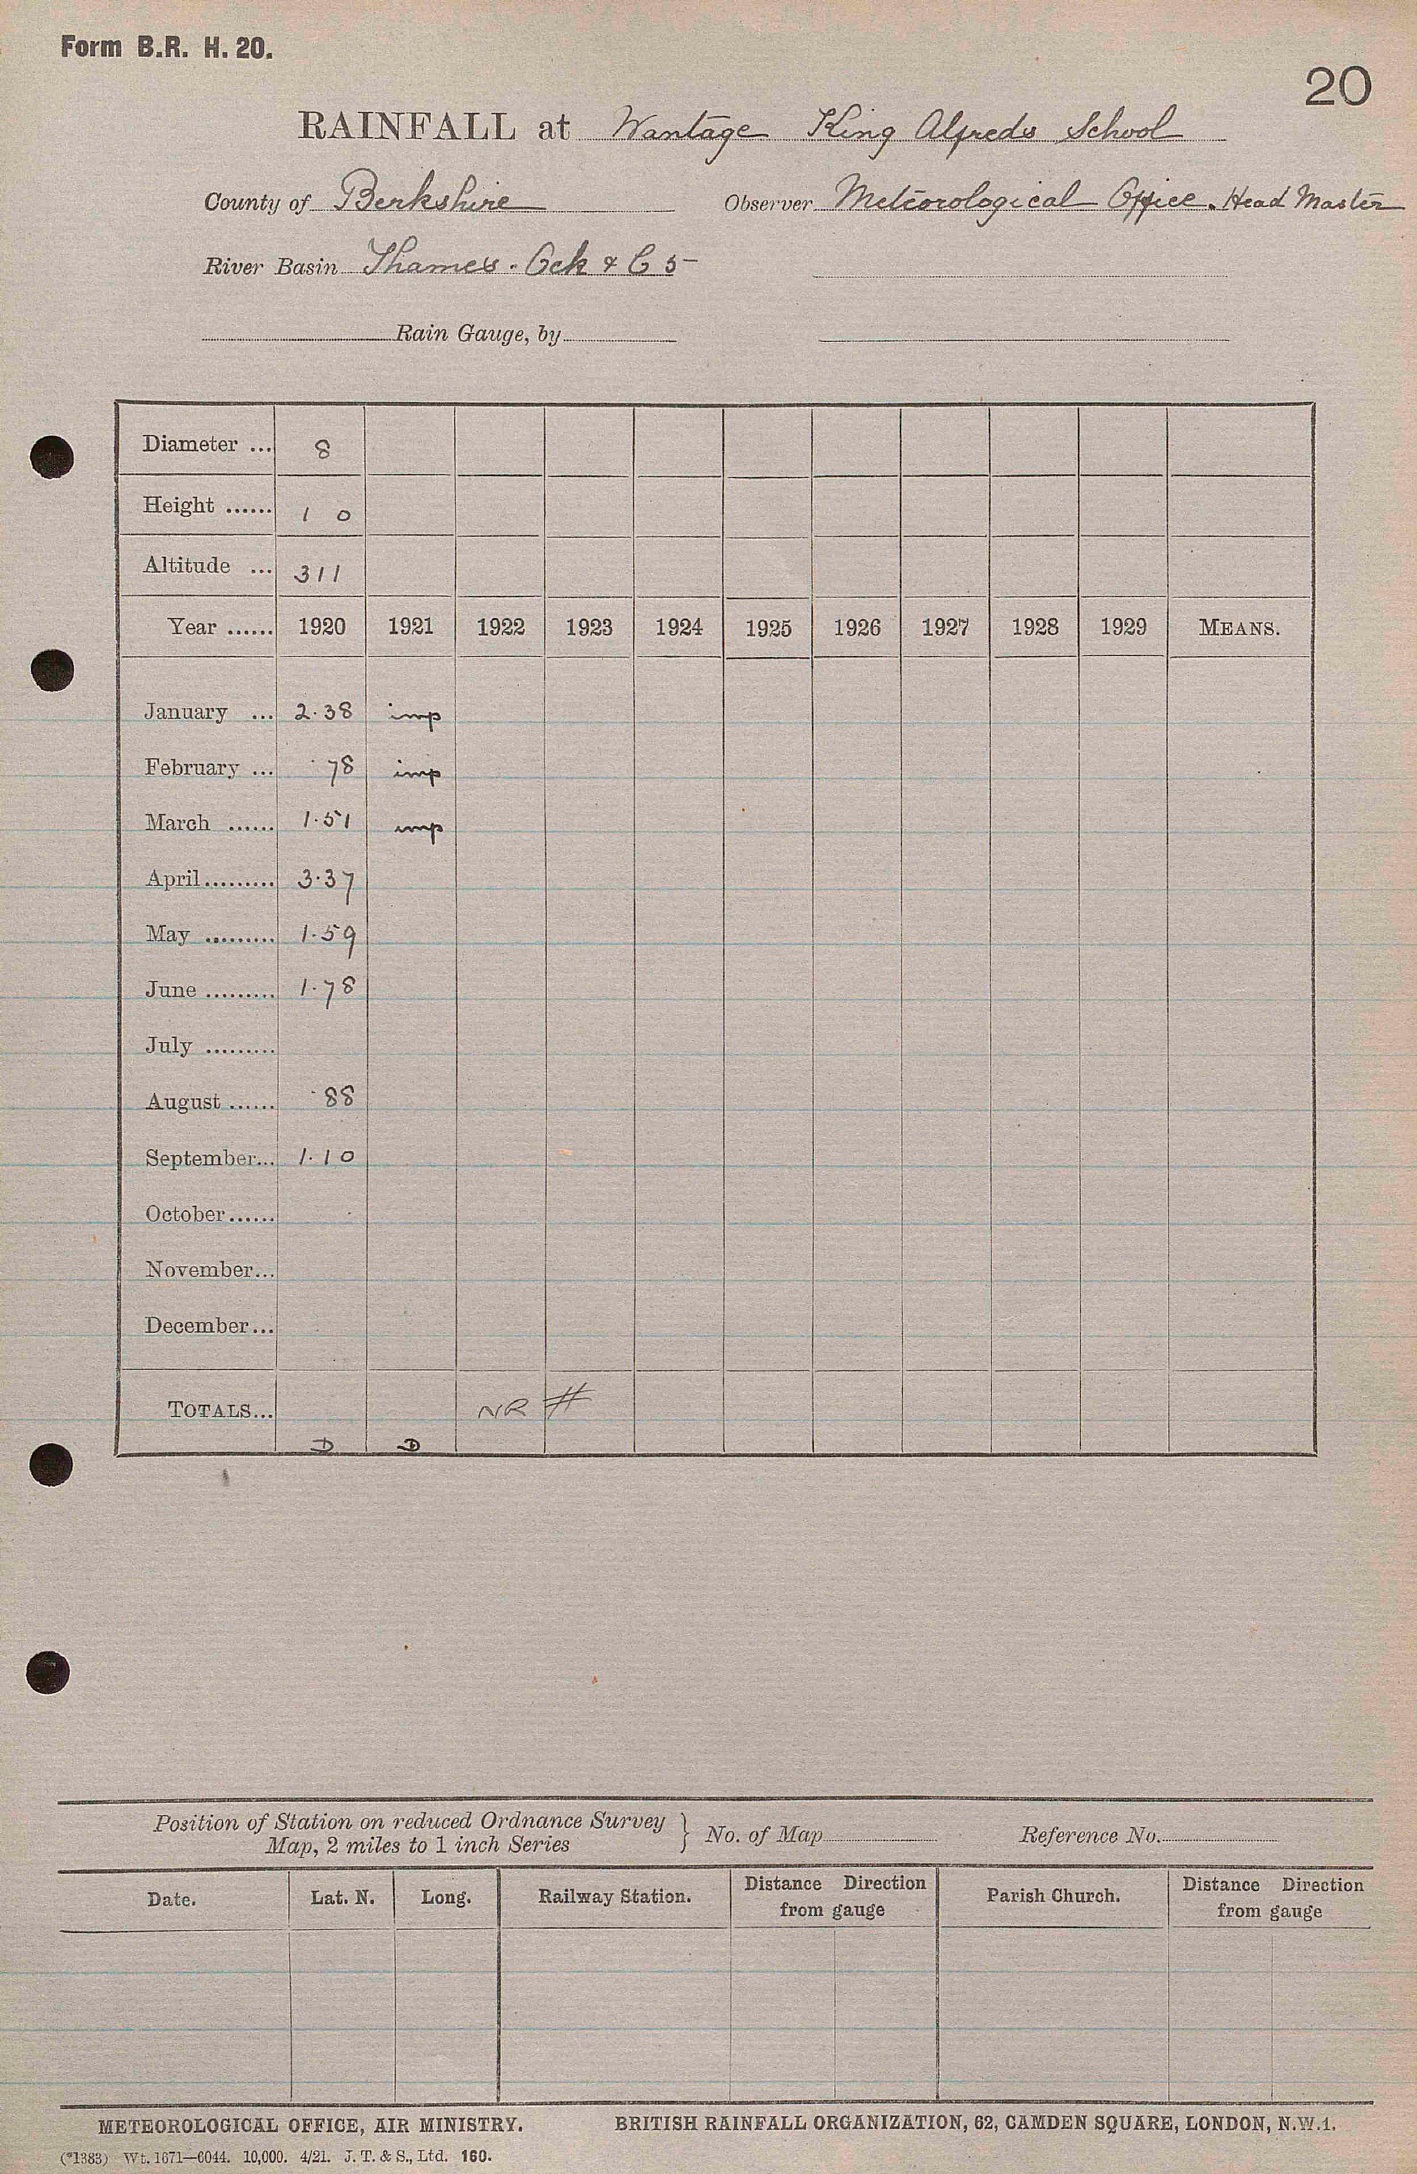 Form B.R. H. 20.
20
RAINFALL at Wantage King Alfreds School
County of Berkshire Observer Meteorological Office. Head Master
River Basin Thames. Ock & C 5
Rain Gauge, by
Diameter ... 8
Height ...... 1 0
Altitude ... 311
Year ...... 1920 1921 1922 1923 1924 1925 1926 1927 1928 1929 MEANS.
January ... 2.38 imp
February ... .78 imp
March ...... 1.51 imp
April......... 3.37
May ......... 1.59
June ......... 1.78
July .........
August ...... .88
September... 1.10
October......
November...
December...
TOTALS... NR #
D D
Position of Station on reduced Ordnance Survey } No. of Map Reference No.
Map, 2 miles to 1 inch Series
Date. Lat. N. Long. Railway Station. Distance Direction Parish Church. Distance Direction
from gauge from gauge
METEOROLOGICAL OFFICE, AIR MINISTRY. BRITISH RAINFALL ORGANIZATION, 62, CAMDEN SQUARE, LONDON, N.W.1.
(*1383) Wt. 1671—6044. 10,000. 4/21. J. T. & S., Ltd. 160.